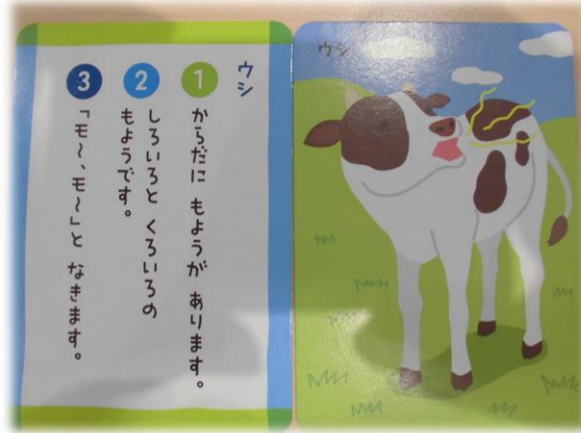 ウシ
1 からだに もようが あります。
2 しろいろと くろいろの
もようです。
3 「モ〜、モ〜」と なきます。
ウシ